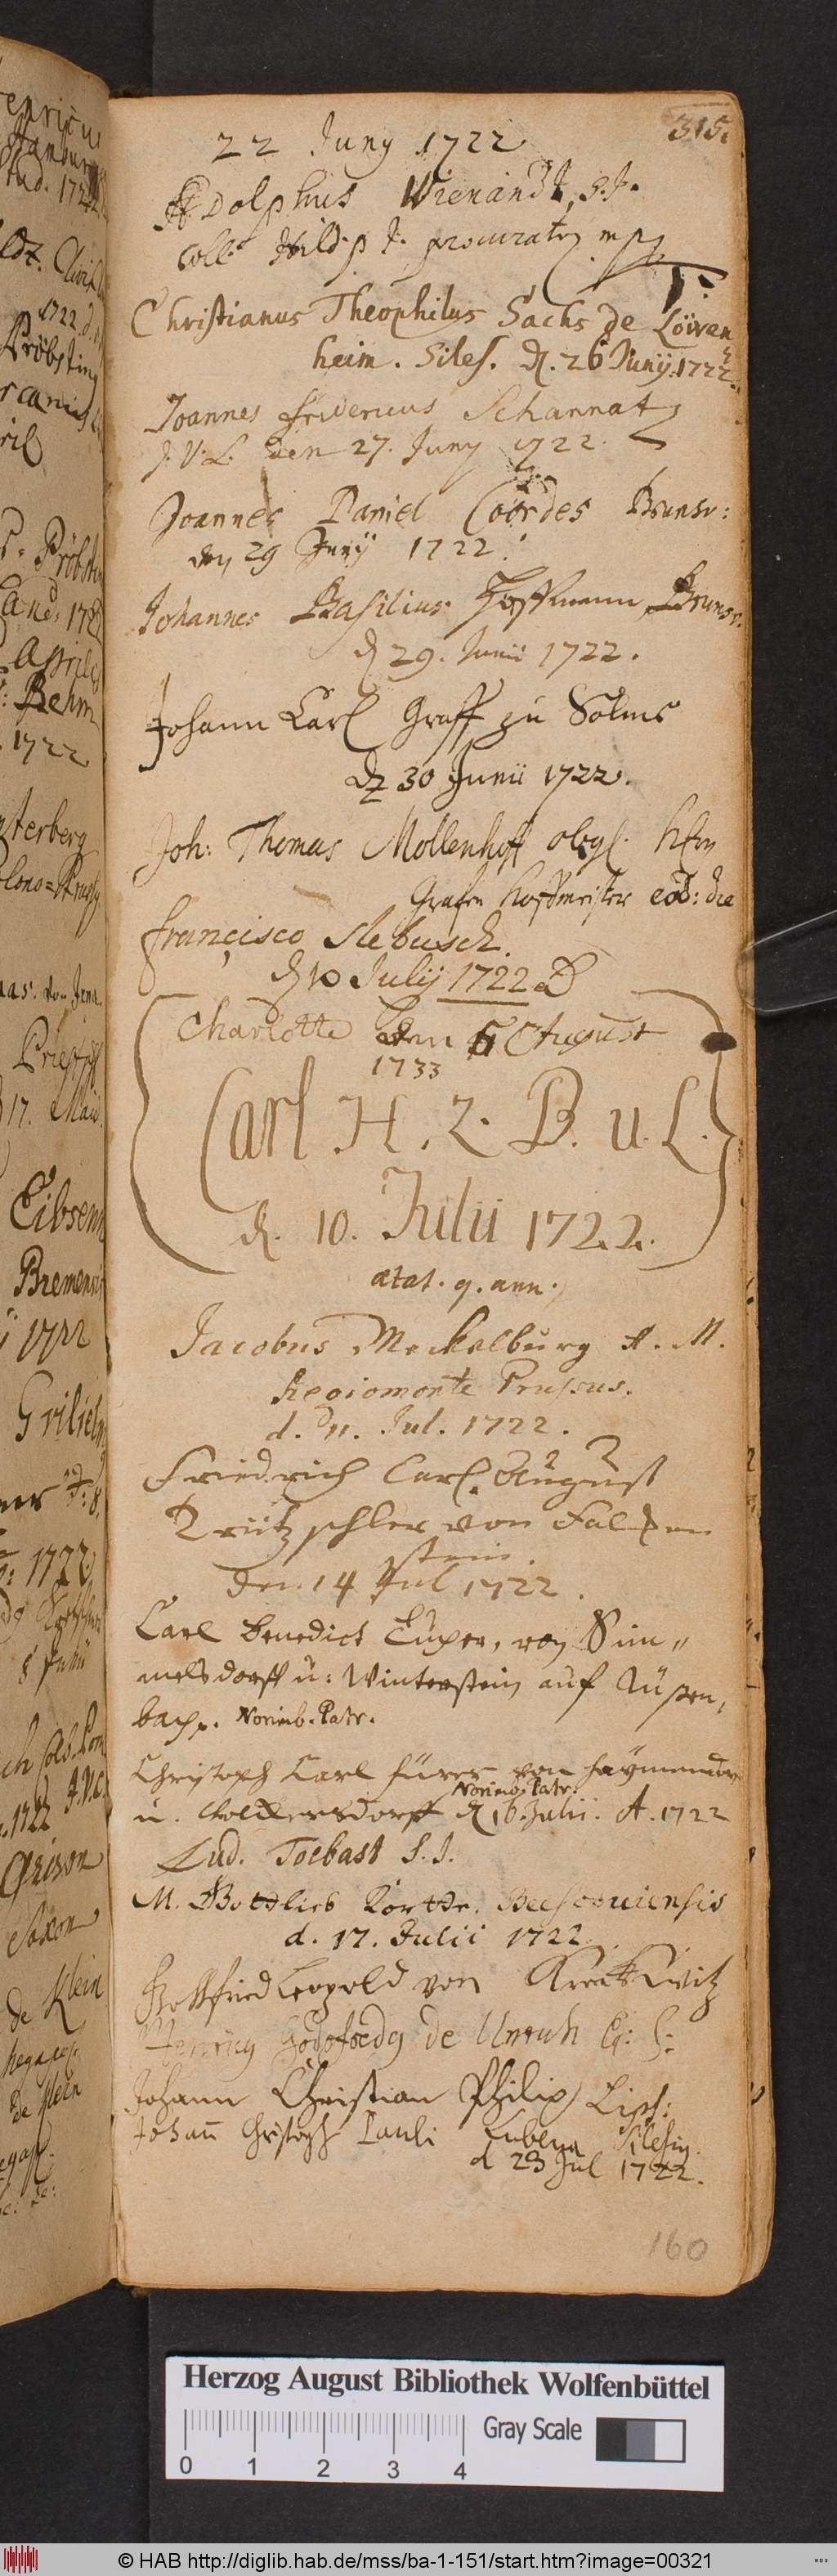 315.
22 Juny 1722
Adolphus Wienandt, S.J.
Coll. Hild. p. t. procurator mpr
Christianus Theophilus Sachs de Löwen
heim. Siles. d. 26 Junij. 1722.
Joannes Fridericus Schannat
J. V. L. den 27. Juny 1722.
Joannes Daniel Coordes Brunsv:
den 29 Junij 1722.
Johannes Basilius Hoffmann Brunsv.
d 29. Junii 1722.
Johann Carl Graff zu Solms
d 30 Junii 1722.
Joh: Thomas Mollenhoff obgl. Hrn
Grafen Hoffmeister eod: die
Francisco Slebusch.
d 10 Julij 1722
Charlotte den 5 August
1733
Carl H. Z. B. u. L.
d. 10. Julii 1722.
ætat. 9. ann.
Jacobus Meckelburg A. M.
Regiomonte Prussus.
d. 11. Jul. 1722.
Friedrich Carl August
Trützschler von Falken
stein.
den 14 Jul 1722.
Carl Benedict von Sim"
melsdorff u: Winterstein auf
bach. Norimb. Patr.
Christoph Carl Fürer von Haymendorf
Norimb. Patr.
u. Wolckersdorff d 16. Julii. A. 1722
Lud. Toebast S. J.
M. Gottlieb Kortte. Beescouiensis
d. 17. Julii 1722.
Gottfried Leopold von Kreckwitz
Henricg Godofredg de Unruh Eq: S:
Johann Christian Philip Lips:
Johan Christoph Pauli Lubena Silesig.
d 23 Jul 1722.
160
Herzog August Bibliothek Wolfenbüttel
Gray Scale
0 1 2 3 4
© HAB http://diglib.hab.de/mss/ba-1-151/start.htm?image=00321